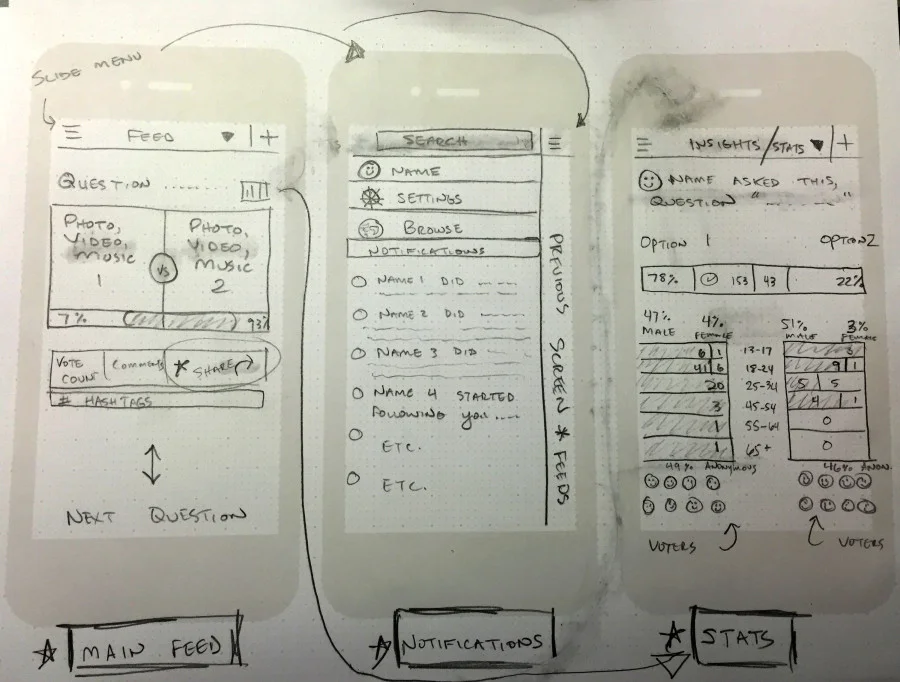 SLIDE MENU
FEED
+
QUESTION ......
PHOTO,
VIDEO,
MUSIC
1
VS
PHOTO,
VIDEO,
MUSIC
2
7%
93%
VOTE
COUNT
Comments
* SHARE
# HASHTAGS
NEXT QUESTION
MAIN FEED
SEARCH
NAME
SETTINGS
BROWSE
NOTIFICATIONS
NAME 1 DID
NAME 2 DID
NAME 3 DID
NAME 4 STARTED
FOLLOWING YOU ....
ETC.
ETC.
PREVIOUS SCREEN * FEEDS
NOTIFICATIONS
INSIGHTS/STATS
+
NAME ASKED THIS,
QUESTION "- - - -"
OPTION 1
OPTION 2
78%
153
43
22%
47%
MALE
4%
FEMALE
51%
MALE
3%
FEMALE
6 1 13-17 3
41 6 18-24 9 1
20 25-34 5 5
3 45-54 4 1
1 55-64 0
1 65+ 0
49% ANONYMOUS
46% ANON.
VOTERS
VOTERS
STATS